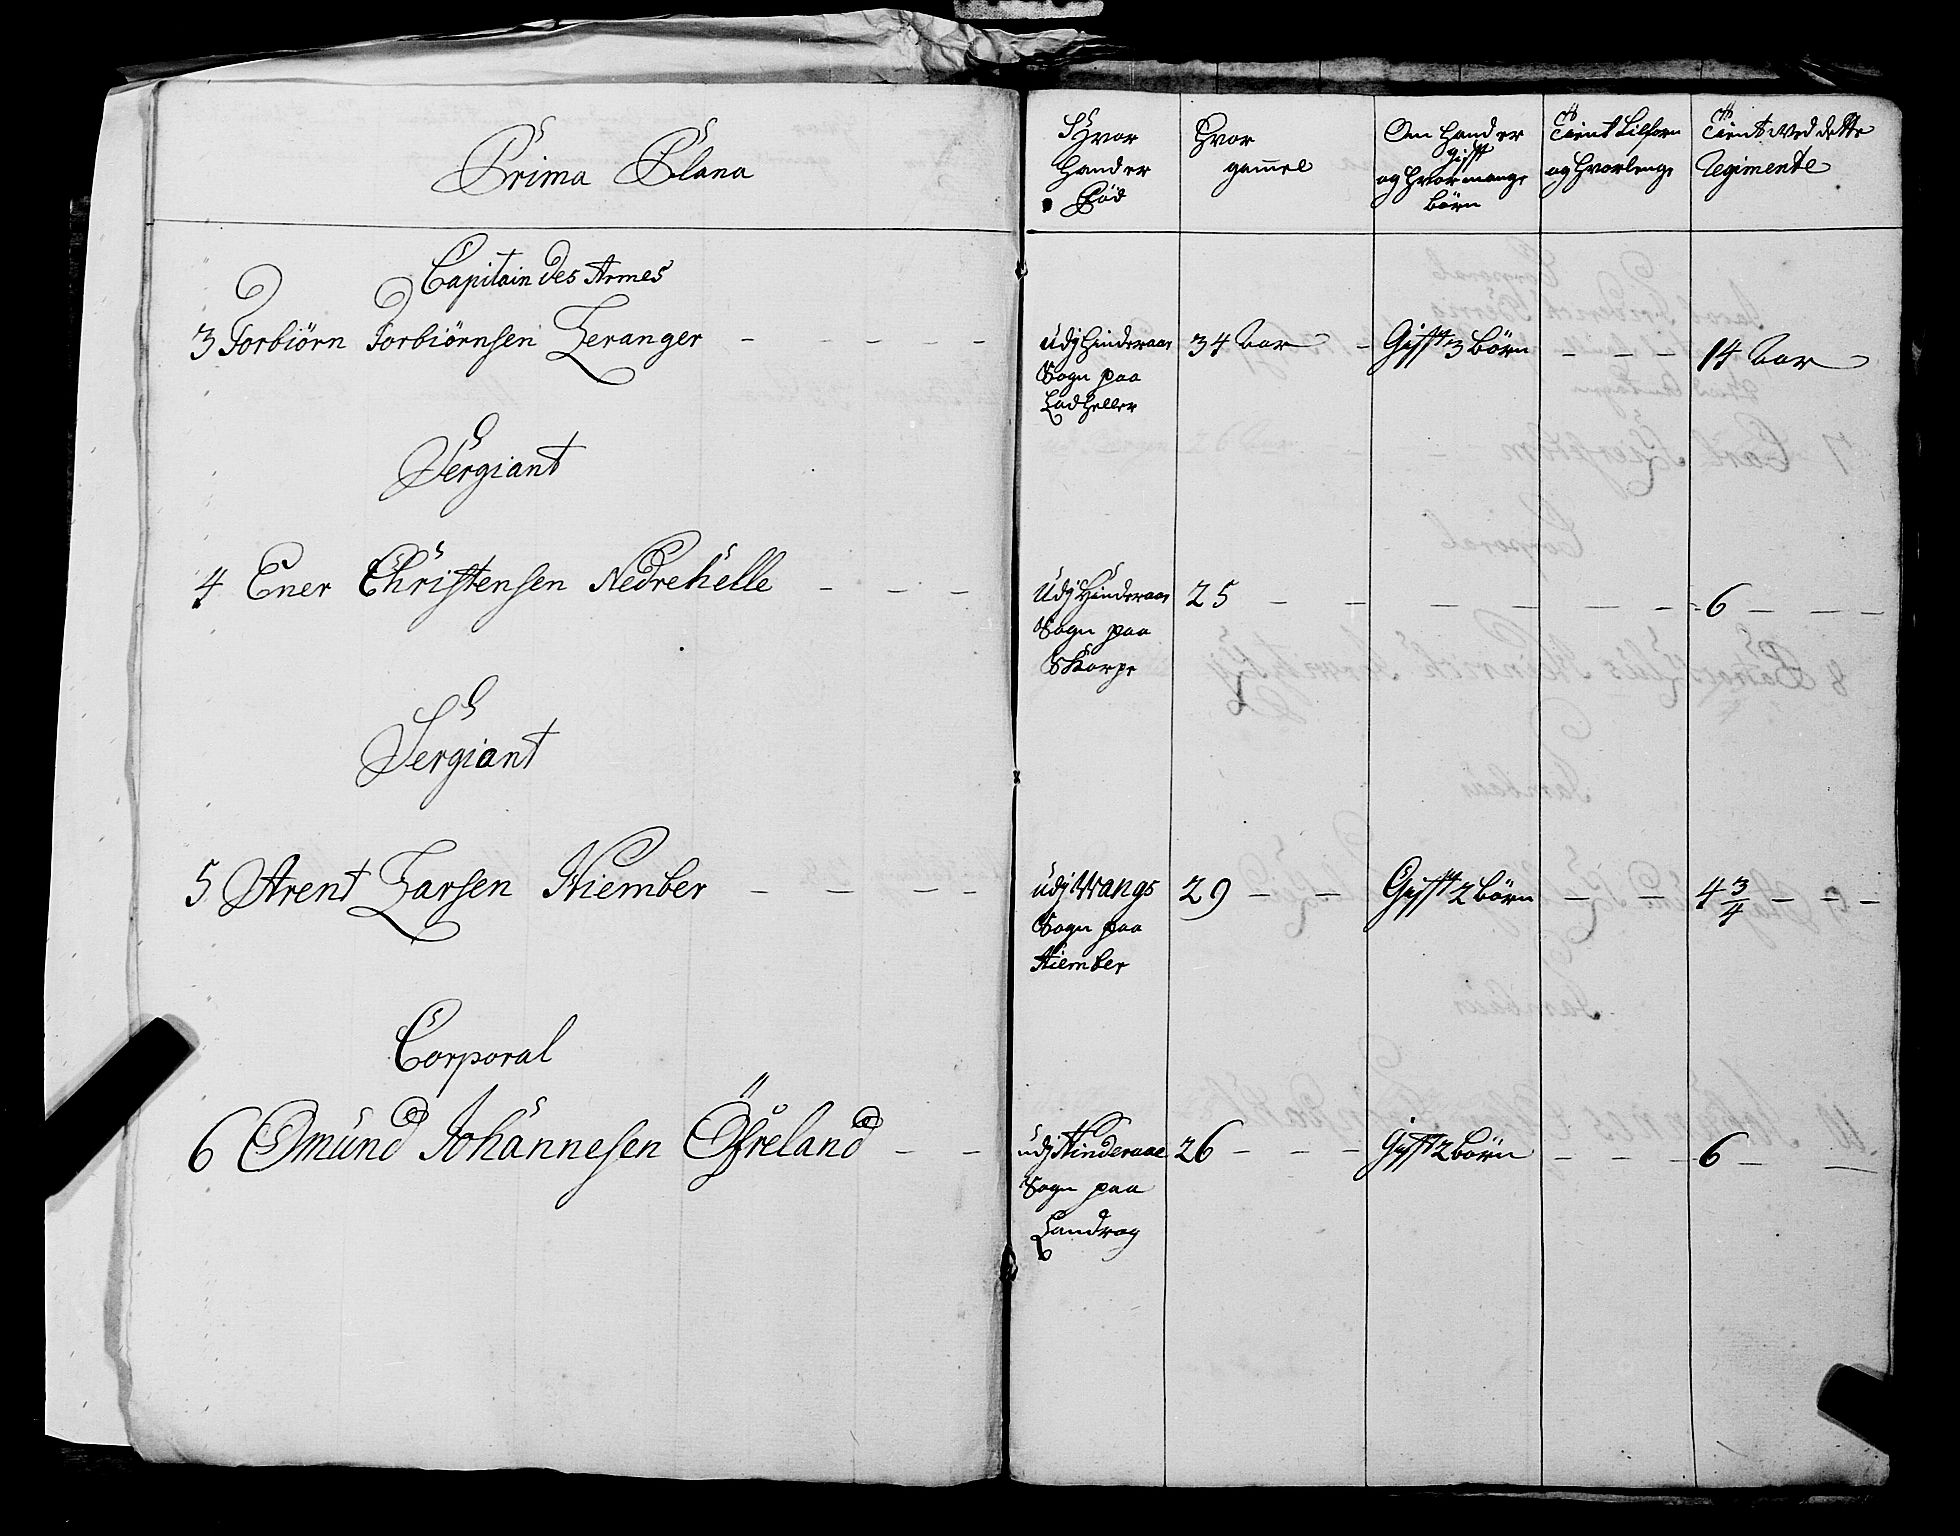 Prima Plana
Capitain des Armes
3 Torbiörn Torbiörnsen Leranger - - - - -
Sergiant
4 Ener Christensen Nedrehelle - - -
Sergiant
5 Arent Larsen Hiember - - - -
Corporal
6 Omund Johannesen Öfreland - -
Hvor
hand er
Föd
Hvor
gammel
Om hand er
gift
og hvor mange
börn
Tient tilforn
og hvorlenge
Tient ved dette
Regimente
udj Hinderaae
Sogn paa
34 Aar -
Gift 3 börn
- - -
14 Aar
Udj Hinderaae
Sogn paa
Skorpe
25 - - - - - -
6 - - -
udj Wangs
Sogn paa
Hiember
29 - -
Gift 2 börn
- -
4 3/4 - - -
udj Hinderaae
Sogn paa
Landrog
26 - - -
Gift 2 börn
- - - -
6 - -